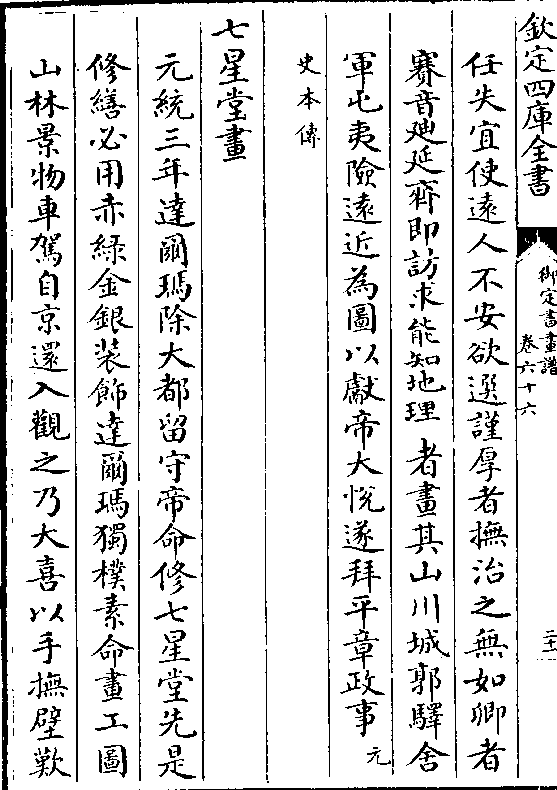 欽定四庫全書
御定書畫譜
卷六十六
任失宜使遠人不安欲選謹厚者撫治之無如卿者
賽音廸延齊即訪求能知地理者畫其山川城郭驛舍
軍屯夷險遠近為圖以獻帝大悅遂拜平章政事元
史本傳
七星堂畫
元統三年達爾瑪除大都留守帝命修七星堂先是
修繕必用赤綠金銀裝飾達爾瑪獨樸素命畫工圖
山林景物車駕自京還入觀之乃大喜以手撫壁歎